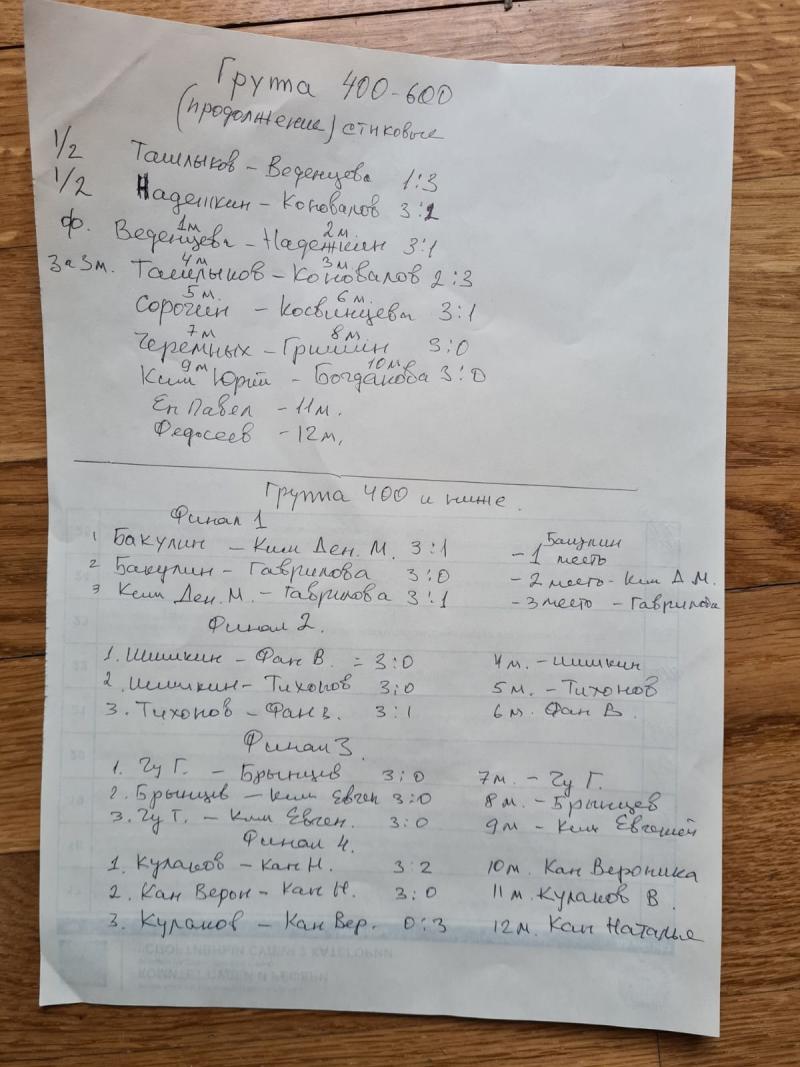 Группа 400-600
(продолжение) стиковые
1/2 Ташлыков - Веденцева 1:3
1/2 Надежкин - Коновалов 3:2
ф. Веденцева - Надежкин 3:1
1м 2м.
за 3м. Ташлыков - Коновалов 2:3
4м 3м.
Сорочин - Косвинцева 3:1
5м. 6м.
Черемных - Гришин 3:0
7м 8м.
Ким Юрий - Богданова 3:0
9м 10м
Ен Павел - 11м.
Федосеев - 12м.
Группа 400 и ниже.
Финал 1
1 Бакулин - Ким Ден. М. 3:1 - 1 место Бакулин
2 Бакулин - Гаврилова 3:0 - 2 место - Ким Д.М.
3 Ким Ден. М. - Гаврилова 3:1 - 3 место - Гаврилова
Финал 2.
1. Шишкин - Фан В. = 3:0 4м. - Шишкин
2. Шишкин - Тихонов 3:0 5м. - Тихонов
3. Тихонов - Фан В. 3:1 6м. Фан В.
Финал 3.
1. Чу Г. - Брынцев 3:0 7м. - Чу Г.
2. Брынцев - Ким Евген 3:0 8м. - Брынцев
3. Чу Г. - Ким Евген. 3:0 9м - Ким Евгений
Финал 4.
1. Кулаков - Кан Н. 3:2 10м. Кан Вероника
2. Кан Верон - Кан Н. 3:0 11м. Кулаков В.
3. Кулаков - Кан Вер. 0:3 12м. Кан Наталья